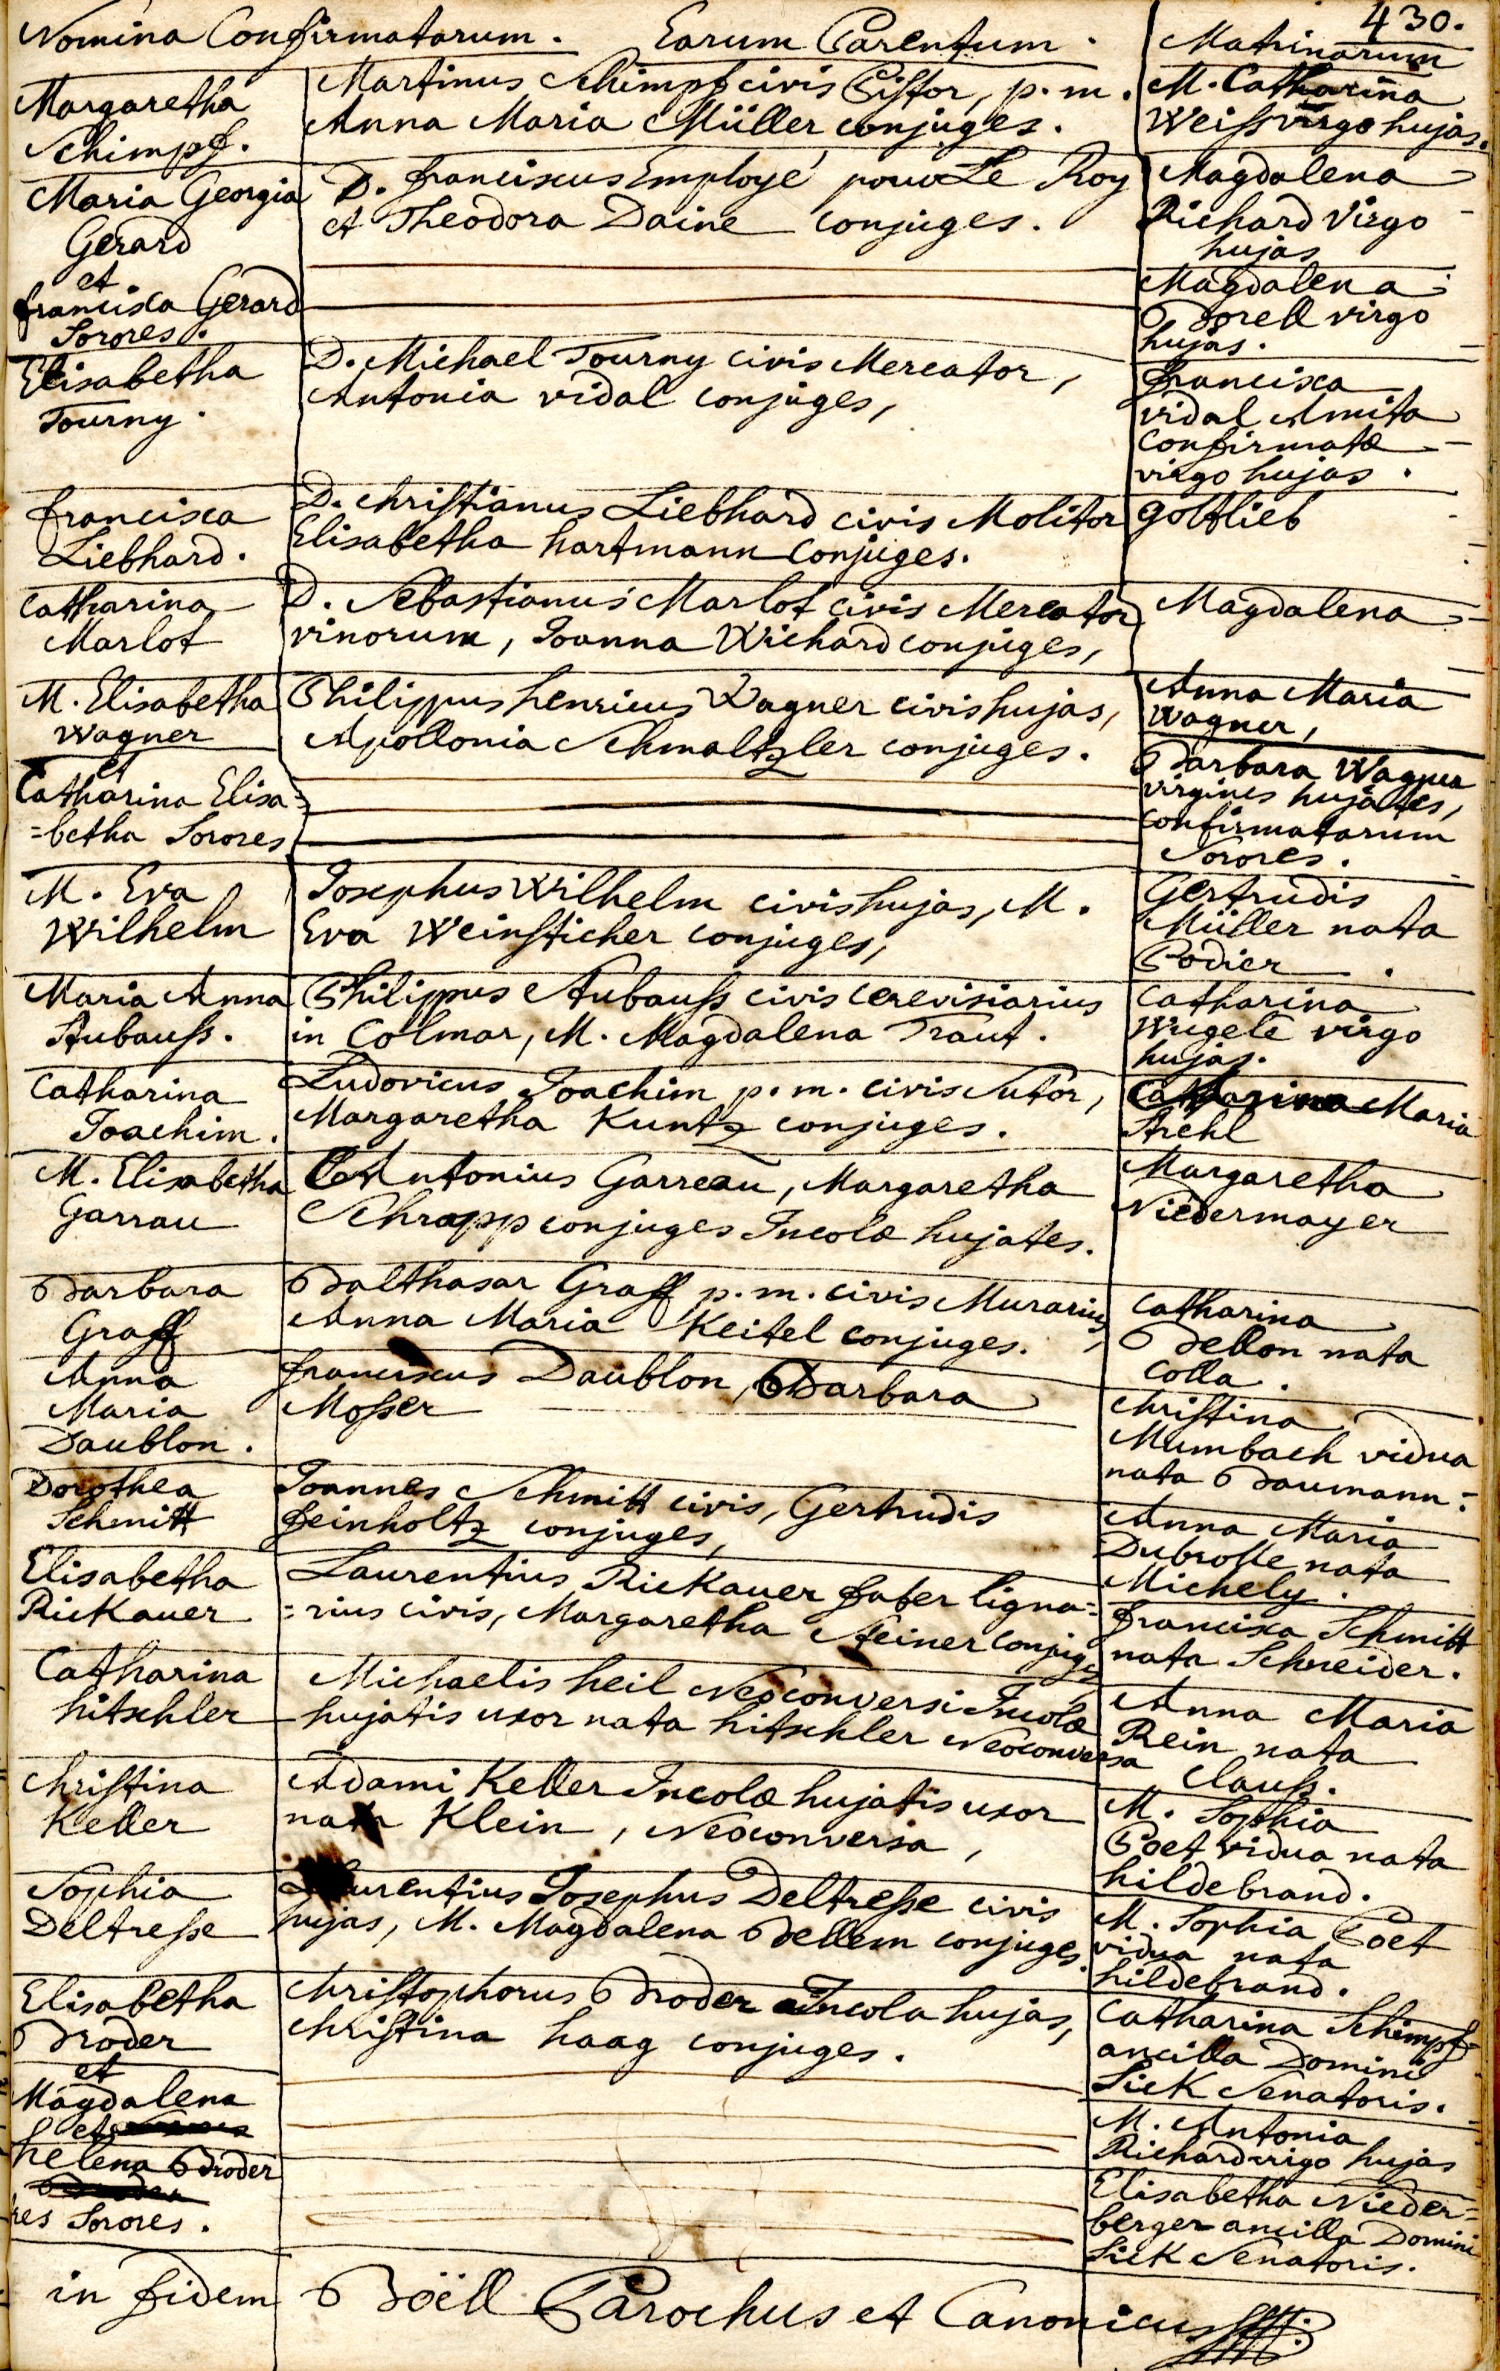 430.
Nomina Confirmatarum. Earum Parentum. Matrinarum
Margaretha
Schimpf.
Martinus Schimpf civis Pistor, p. m.
Anna Maria Müller conjuges.
M. Catharina
Weiss virgo hujas.
Maria Georgia
Gerard
et
francisca Gerard
Sorores.
D. franciscus Employé pour Le Roy
et Theodora Daine conjuges.
Magdalena
Richard Virgo
hujas
Magdalena
Borell virgo
hujas.
Elisabetha
Tourny.
D. Michael Tourny civis Mercator,
Antonia vidal conjuges,
francisca
vidal Amita
confirmatæ
virgo hujas.
francisca
Liebhard.
D. christianus Liebhard civis Molitor
Elisabetha hartmann conjuges.
Gottlieb
Catharina
Marlot
D. Sebastianus Marlot civis Mercator
vinorum, Joanna Wichard conjuges,
Magdalena
M. Elisabetha
Wagner
et
Catharina Elisa=
=betha Sorores
Philippus henricus Wagner civis hujas,
Apollonia Schmaltzler conjuges.
Anna Maria
Wagner,
Barbara Wagner
virgines hujates,
confirmatarum
Sorores.
M. Eva
Wilhelm
Josephus Wilhelm civis hujas, M.
Eva Weinsticher conjuges,
Gertrudis
Müller nata
Podier.
Maria Anna
Aubauss.
Philippus Aubauss civis cerevisiarius
in Colmar, M. Magdalena Traut.
Catharina
Wugele virgo
hujas.
Catharina
Joachim.
Ludovicus Joachim p. m. civis Sutor,
Margaretha Kuntz conjuges.
Catharina Maria
Strehl
M. Elisabetha
Garrau
Antonius Garreau, Margaretha
Schrapp conjuges Incolæ hujates.
Margaretha
Niedermayer
Barbara
Graff
Balthasar Graff p. m. civis Murarius,
Anna Maria Keitel conjuges.
Catharina
Bellon nata
Colla.
Anna
Maria
Daublon.
franciscus Daublon, Barbara
Mosser
christina
Mumbach vidua
nata Baumann.
Dorothea
Schmitt
Joannes Schmitt civis, Gertrudis
feinholtz conjuges,
Anna Maria
Dubrosse nata
Michely.
Elisabetha
Rickauer
Laurentius Rickauer faber ligna=
=rius civis, Margaretha Steiner conjuges
francisca Schmitt
nata Schneider.
Catharina
hitschler
Michaelis heil Neoconversi Incolæ
hujatis uxor nata hitschler Neoconversa
Anna Maria
Rein nata
Clauss.
christina
Keller
Adami Keller Incolæ hujatis uxor
nata Klein, Neoconversa,
M. Sophia
Poet vidua nata
hildebrand.
Sophia
Deltresse
Laurentius Josephus Deltresse civis
hujas, M. Magdalena Bellem conjuges.
M. Sophia Poet
vidua nata
hildebrand.
Elisabetha
Broder
et
Magdalena
et
helena Broder
res Sorores.
christophorus Broder Incola hujas,
christina haag conjuges.
Catharina Schimpf
ancilla Domini
Sick Senatoris.
M. Antonia
Richard virgo hujas
Elisabetha Nieder=
berger ancilla Domini
Sick Senatoris.
in fidem Böell Parochus et Canonicus